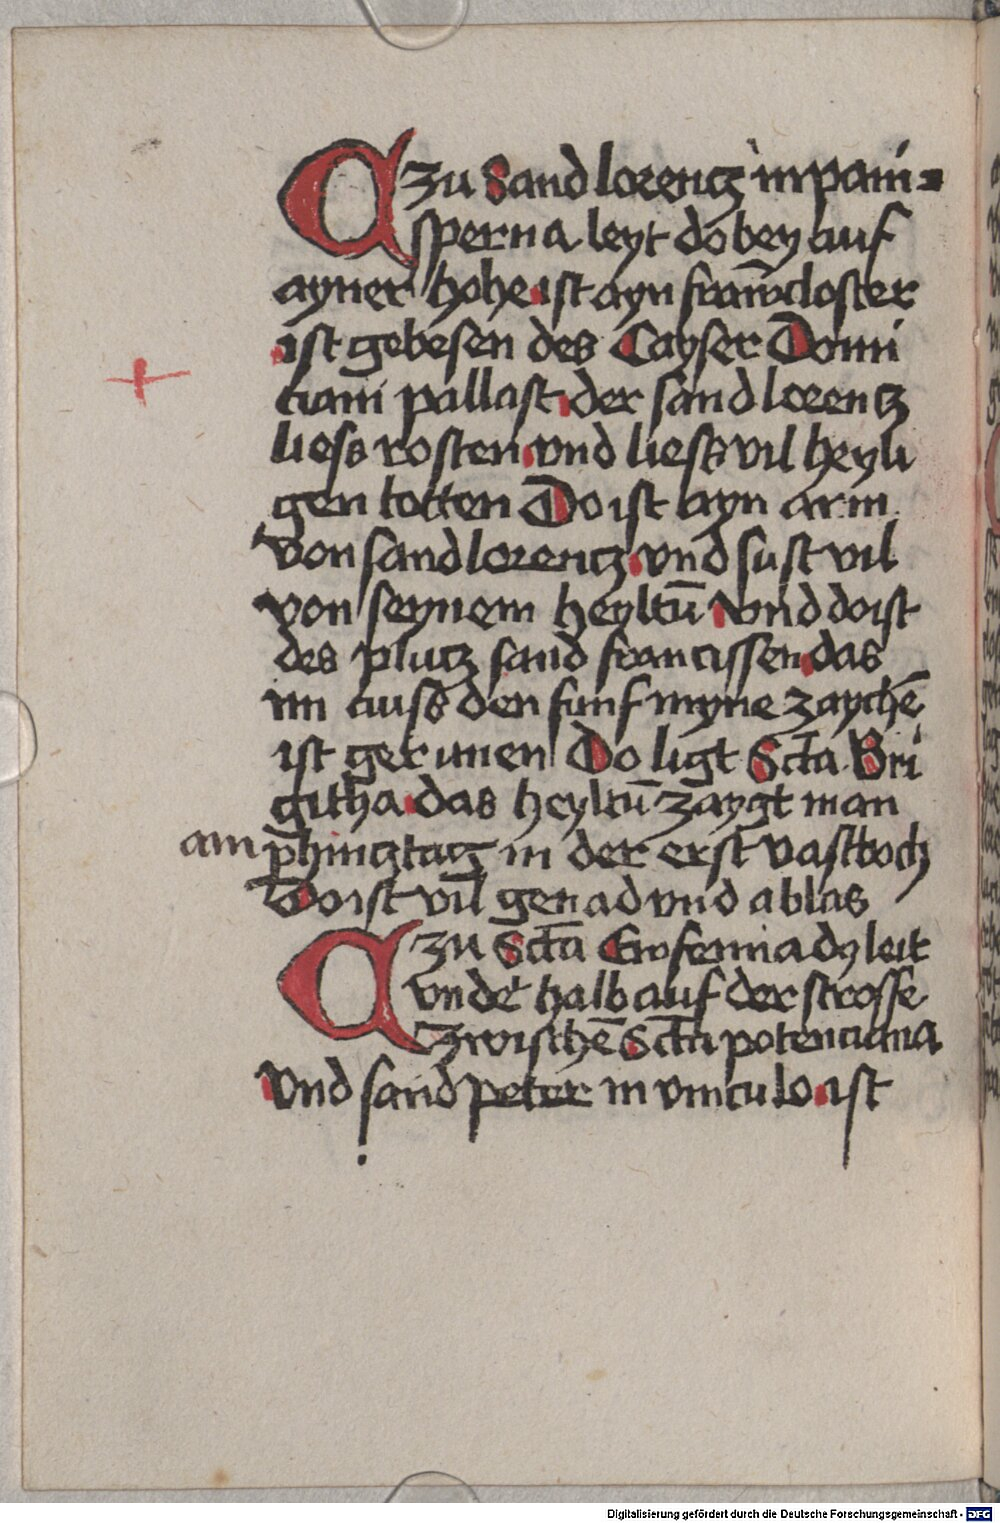 zu Sand lorentz in pani=
sperna leyt do bey auf
ayner hohe ist ayn frawncloster
ist gebesen des Cayser Domi
ciani pallast der sand lorentz
liess rosten vnd liess vil heyli
gen totten Do ist ayn arm
von sand lorentz vnd sust vil
von seynem heyltū vnd do ist
des plutz sand francissen das
im auss den funf myne zaychē
ist gerunen Do ligt Scta Bri
githa das heyltū zaygt man
am phingztag in der erst vastboch
Do ist vil genad vnd ablas
zu Scta Eufemia dy leit
vnder halb auf der strosse
zwischē Scta potenciana
vnd sand peter in vinculo ist
Digitalisierung gefördert durch die Deutsche Forschungsgemeinschaft - DFG